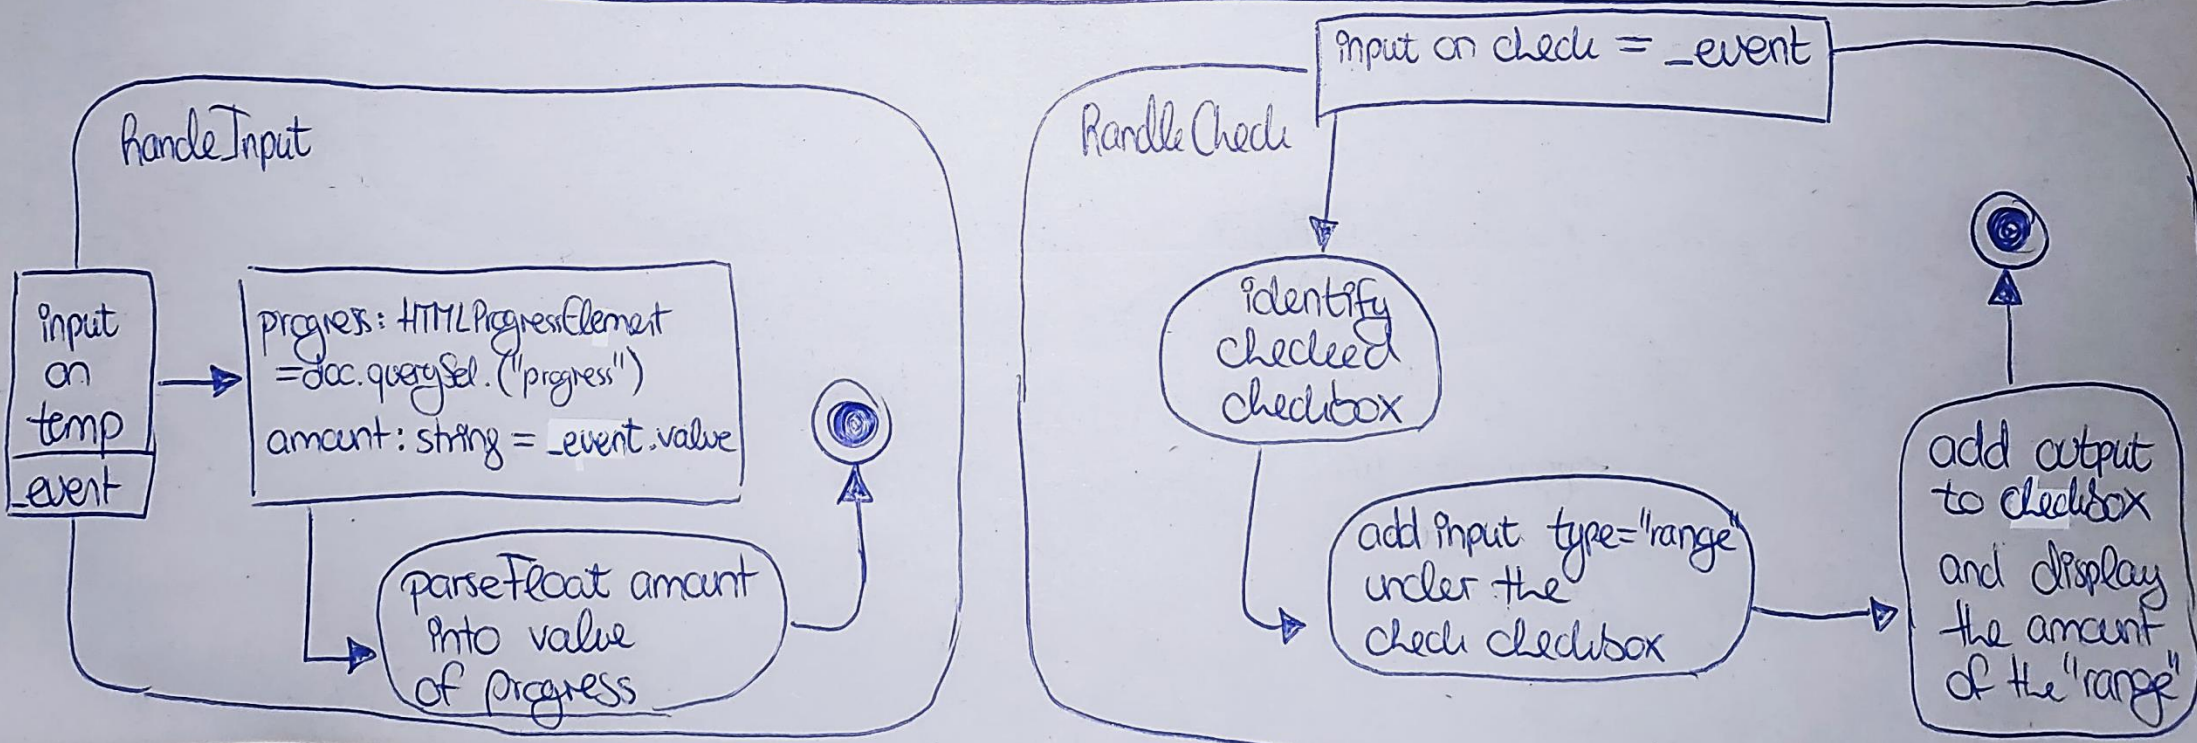 handleInput
input
on
temp
_event
progress: HTMLProgressElement
=doc.querySel.("progress")
amount: string = _event.value
parseFloat amount
into value
of progress
input on check = _event
handleCheck
identify
checked
checkbox
add input type="range"
under the
check checkbox
add output
to checkbox
and display
the amount
of the "range"